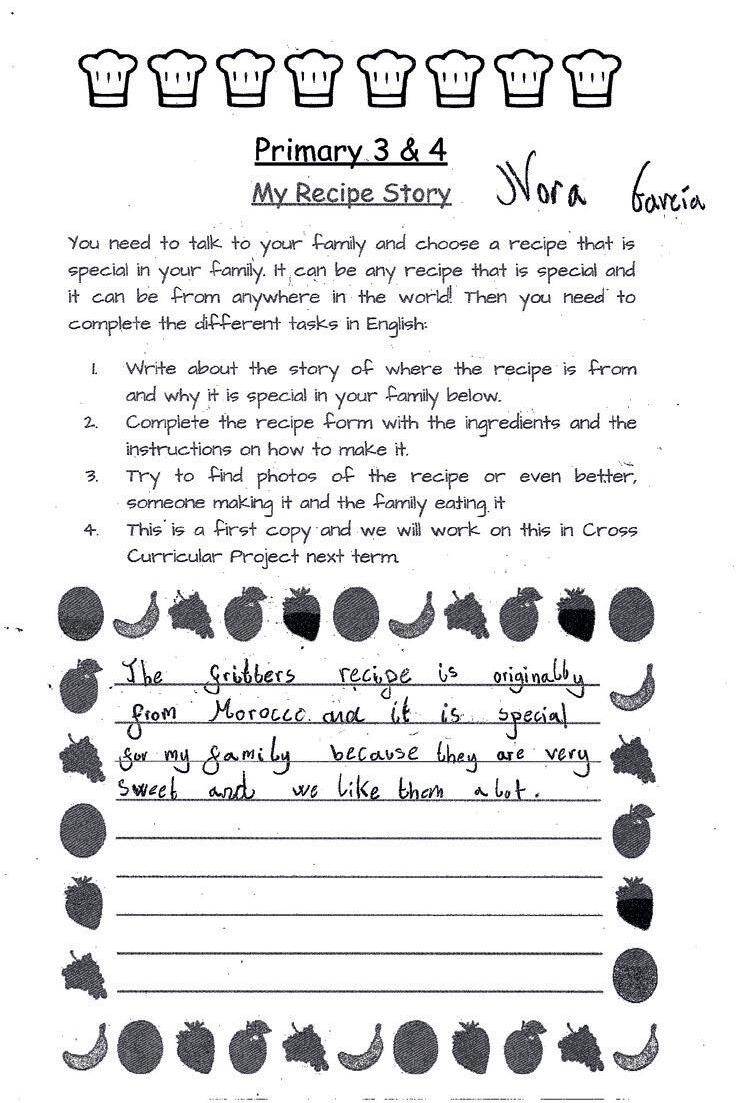 Primary 3 & 4
My Recipe Story
Nora García
You need to talk to your family and choose a recipe that is
special in your family. It can be any recipe that is special and
it can be from anywhere in the world! Then you need to
complete the different tasks in English:
1. Write about the story of where the recipe is from
and why it is special in your family below.
2. Complete the recipe form with the ingredients and the
instructions on how to make it.
3. Try to find photos of the recipe or even better,
someone making it and the family eating it
4. This is a first copy and we will work on this in Cross
Curricular Project next term.
The fritters recipe is originally
from Morocco. and it is special
for my family because they are very
sweet and we like them a lot.